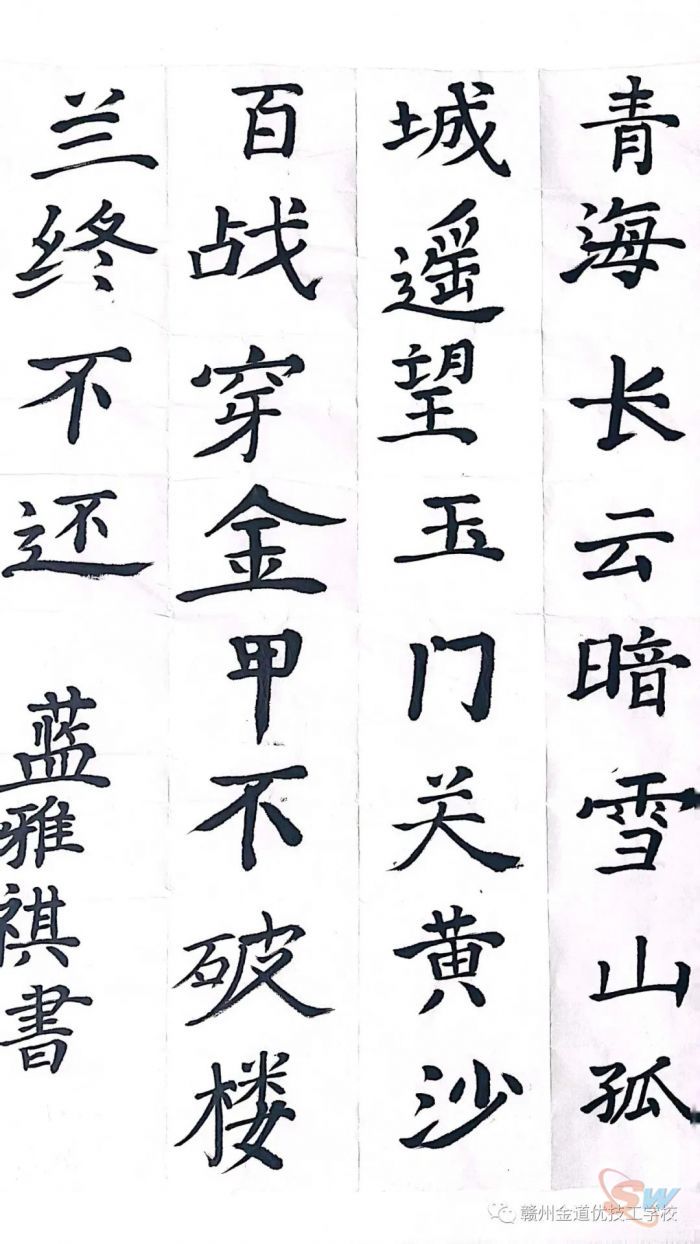 青海长云暗雪山孤
城遥望玉门关黄沙
百战穿金甲不破楼
兰终不还
蓝雅祺書
SW
赣州金道优技工学校